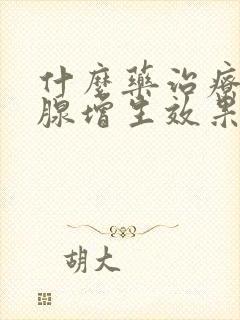 什麼藥治療
腺增生效果
胡大